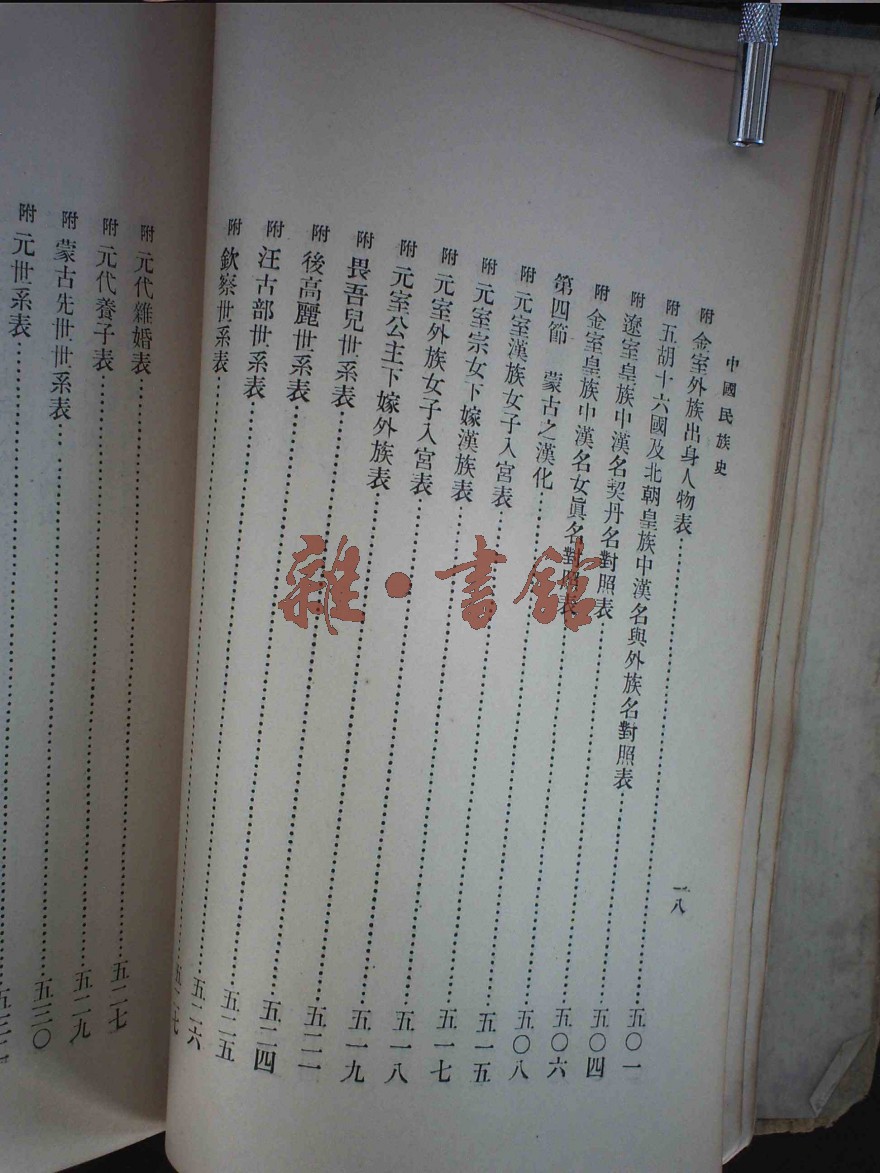 中國民族史 一八
附 金室外族出身人物表……五〇一
附 五胡十六國及北朝皇族中漢名與外族名對照表……五〇四
附 遼室皇族中漢名契丹名對照表……五〇六
附 金室皇族中漢名女眞名對照表……五〇八
第四節 蒙古之漢化……五一五
附 元室漢族女子入宮表……五一七
附 元室宗女下嫁漢族表……五一八
附 元室外族女子入宮表……五一九
附 元室公主下嫁外族表……五二一
附 畏吾兒世系表……五二四
附 後高麗世系表……五二五
附 汪古部世系表……五二六
附 欽察世系表……
附 元代雜婚表……五二七
附 元代養子表……五二九
附 蒙古先世世系表……五三〇
附 元世系表……
雜·書館